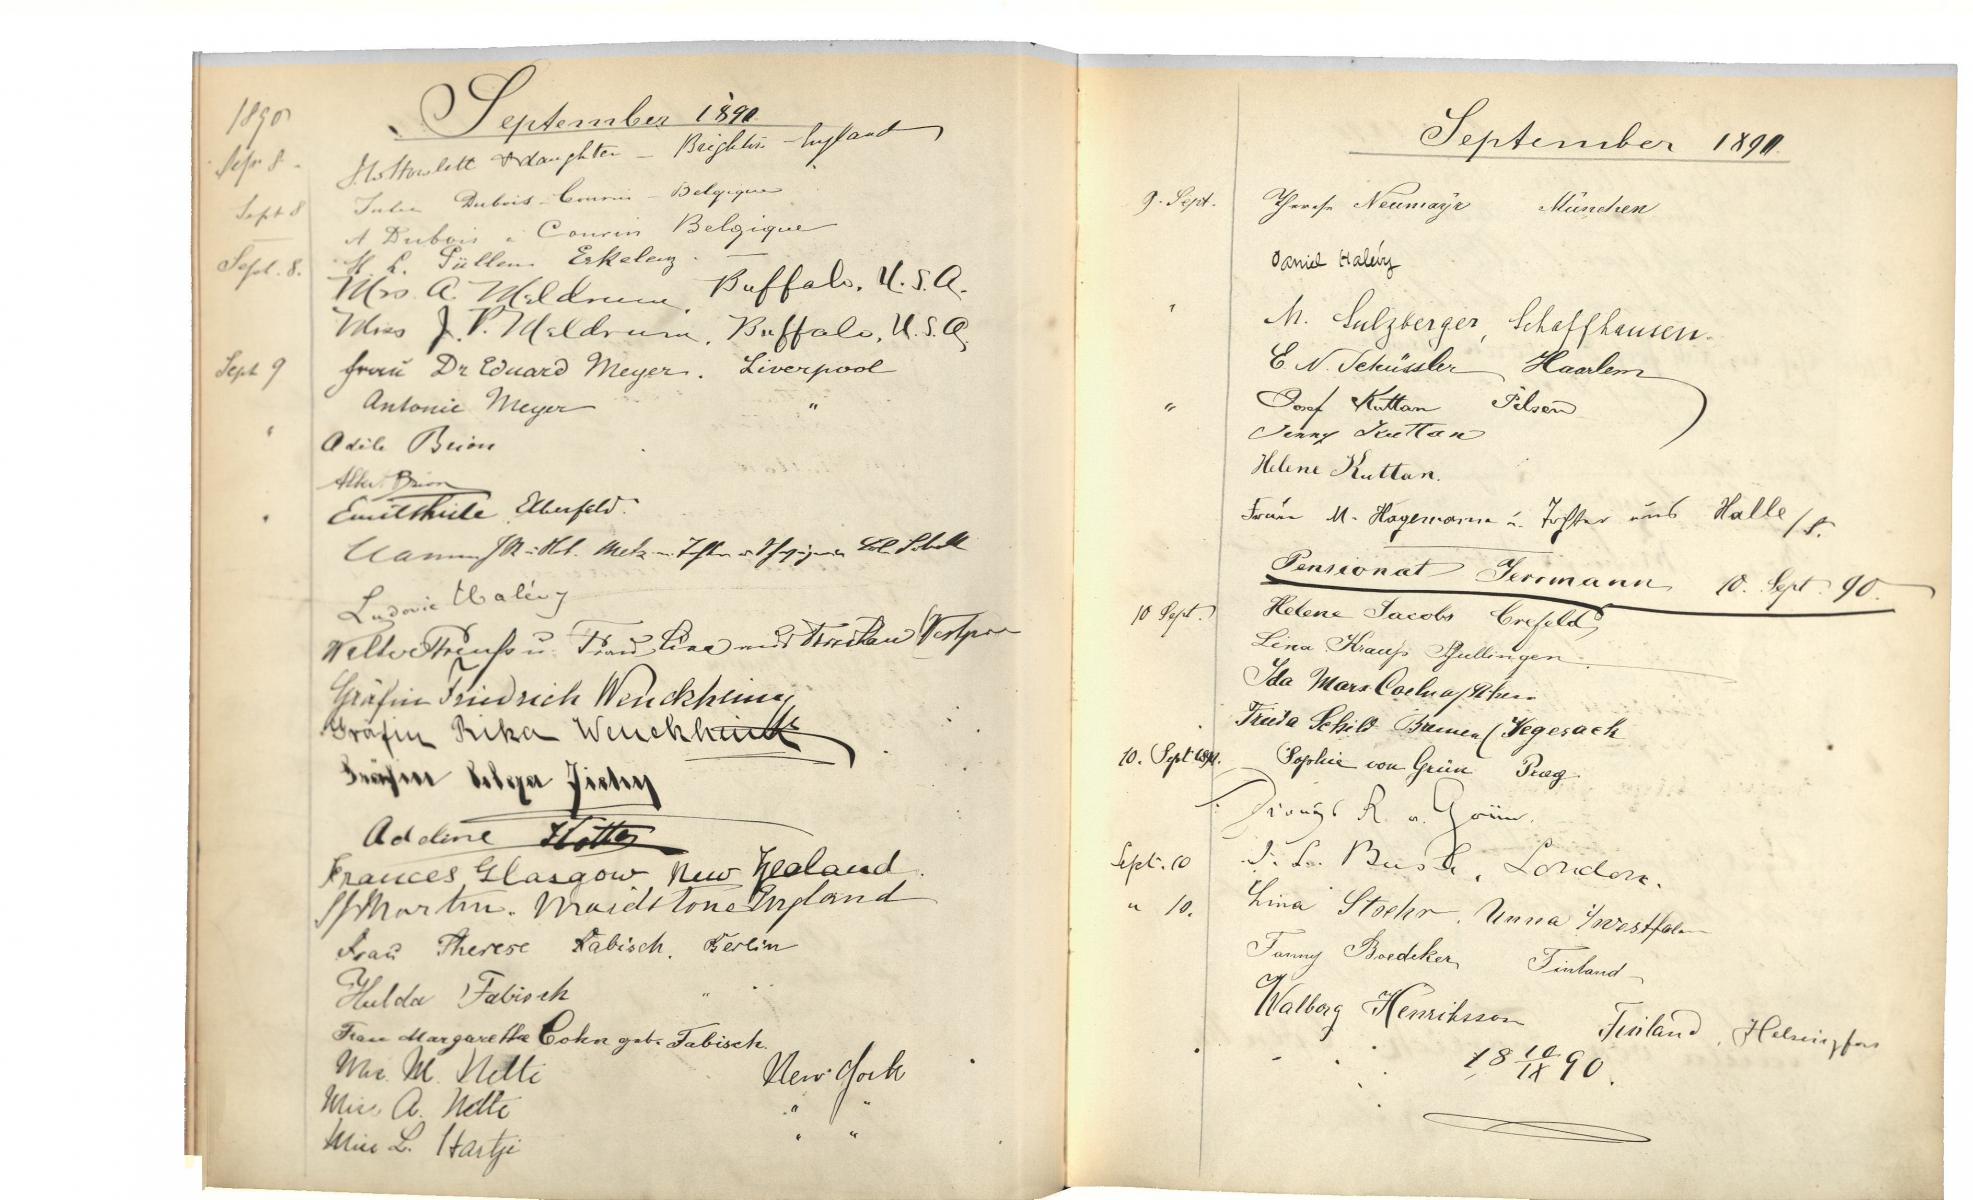 1890
September 1890
Sept 8 Howlett & daughter - Brighton - England
Sept 8 Dubois - Cousin - Belgique
A Dubois - Cousin Belgique
Sept. 8. H. L. Füllen Erkelenz.
Mrs. A. Meldrum, Buffalo, U.S.A.
Miss J. P. Meldrum, Buffalo, U.S.A.
Sept 9 Frau Dr Eduard Meyer. Liverpool
Antonie Meyer "
" Adèle Brion
Albert Brion
Emil Thiele Elberfeld.
Metz
Ludovic Halévy
Walter u. Frau Lina aus
Gräfin Friedrich Wenckheim
Gräfin Rika Wenckheim
Gräfin Zichy
Adeline
Frances Glasgow New Zealand.
Martin. Maidstone England
Frau Therese Fabisch. Berlin
Hulda Fabisch " "
Frau Margarethe Cohn geb. Fabisch.
Mrs. M. Nette New York
Miss A. Nette " "
Miss L. Hartje " "
September 1890.
9. Sept. Therese Neumayr München
Daniel Halévy
" M. Sulzberger, Schaffhausen.
E. N. Schüssler Haarlem
" Josef Kuttan Pilsen
Jenny Kuttan
Helene Kuttan.
M. Hagemann u. Tochter aus Halle /S.
Pensionat Terrmann 10. Sept. 90.
10 Sept. Helene Jacobs Crefeld
Lina Krauß Pfullingen.
Ida Marx
Frieda Schild Bremen / Vegesack
10. Sept 1890. Sophie von Grün Prag.
R. v. Grün.
Sept. 10 J. L. Bush, London.
" 10. Lina Stoehr, Unna i/Westfalen
Fanny Boedeker Finland
Walborg Henriksson Finland, Helsingfors
18 10/IX 90.